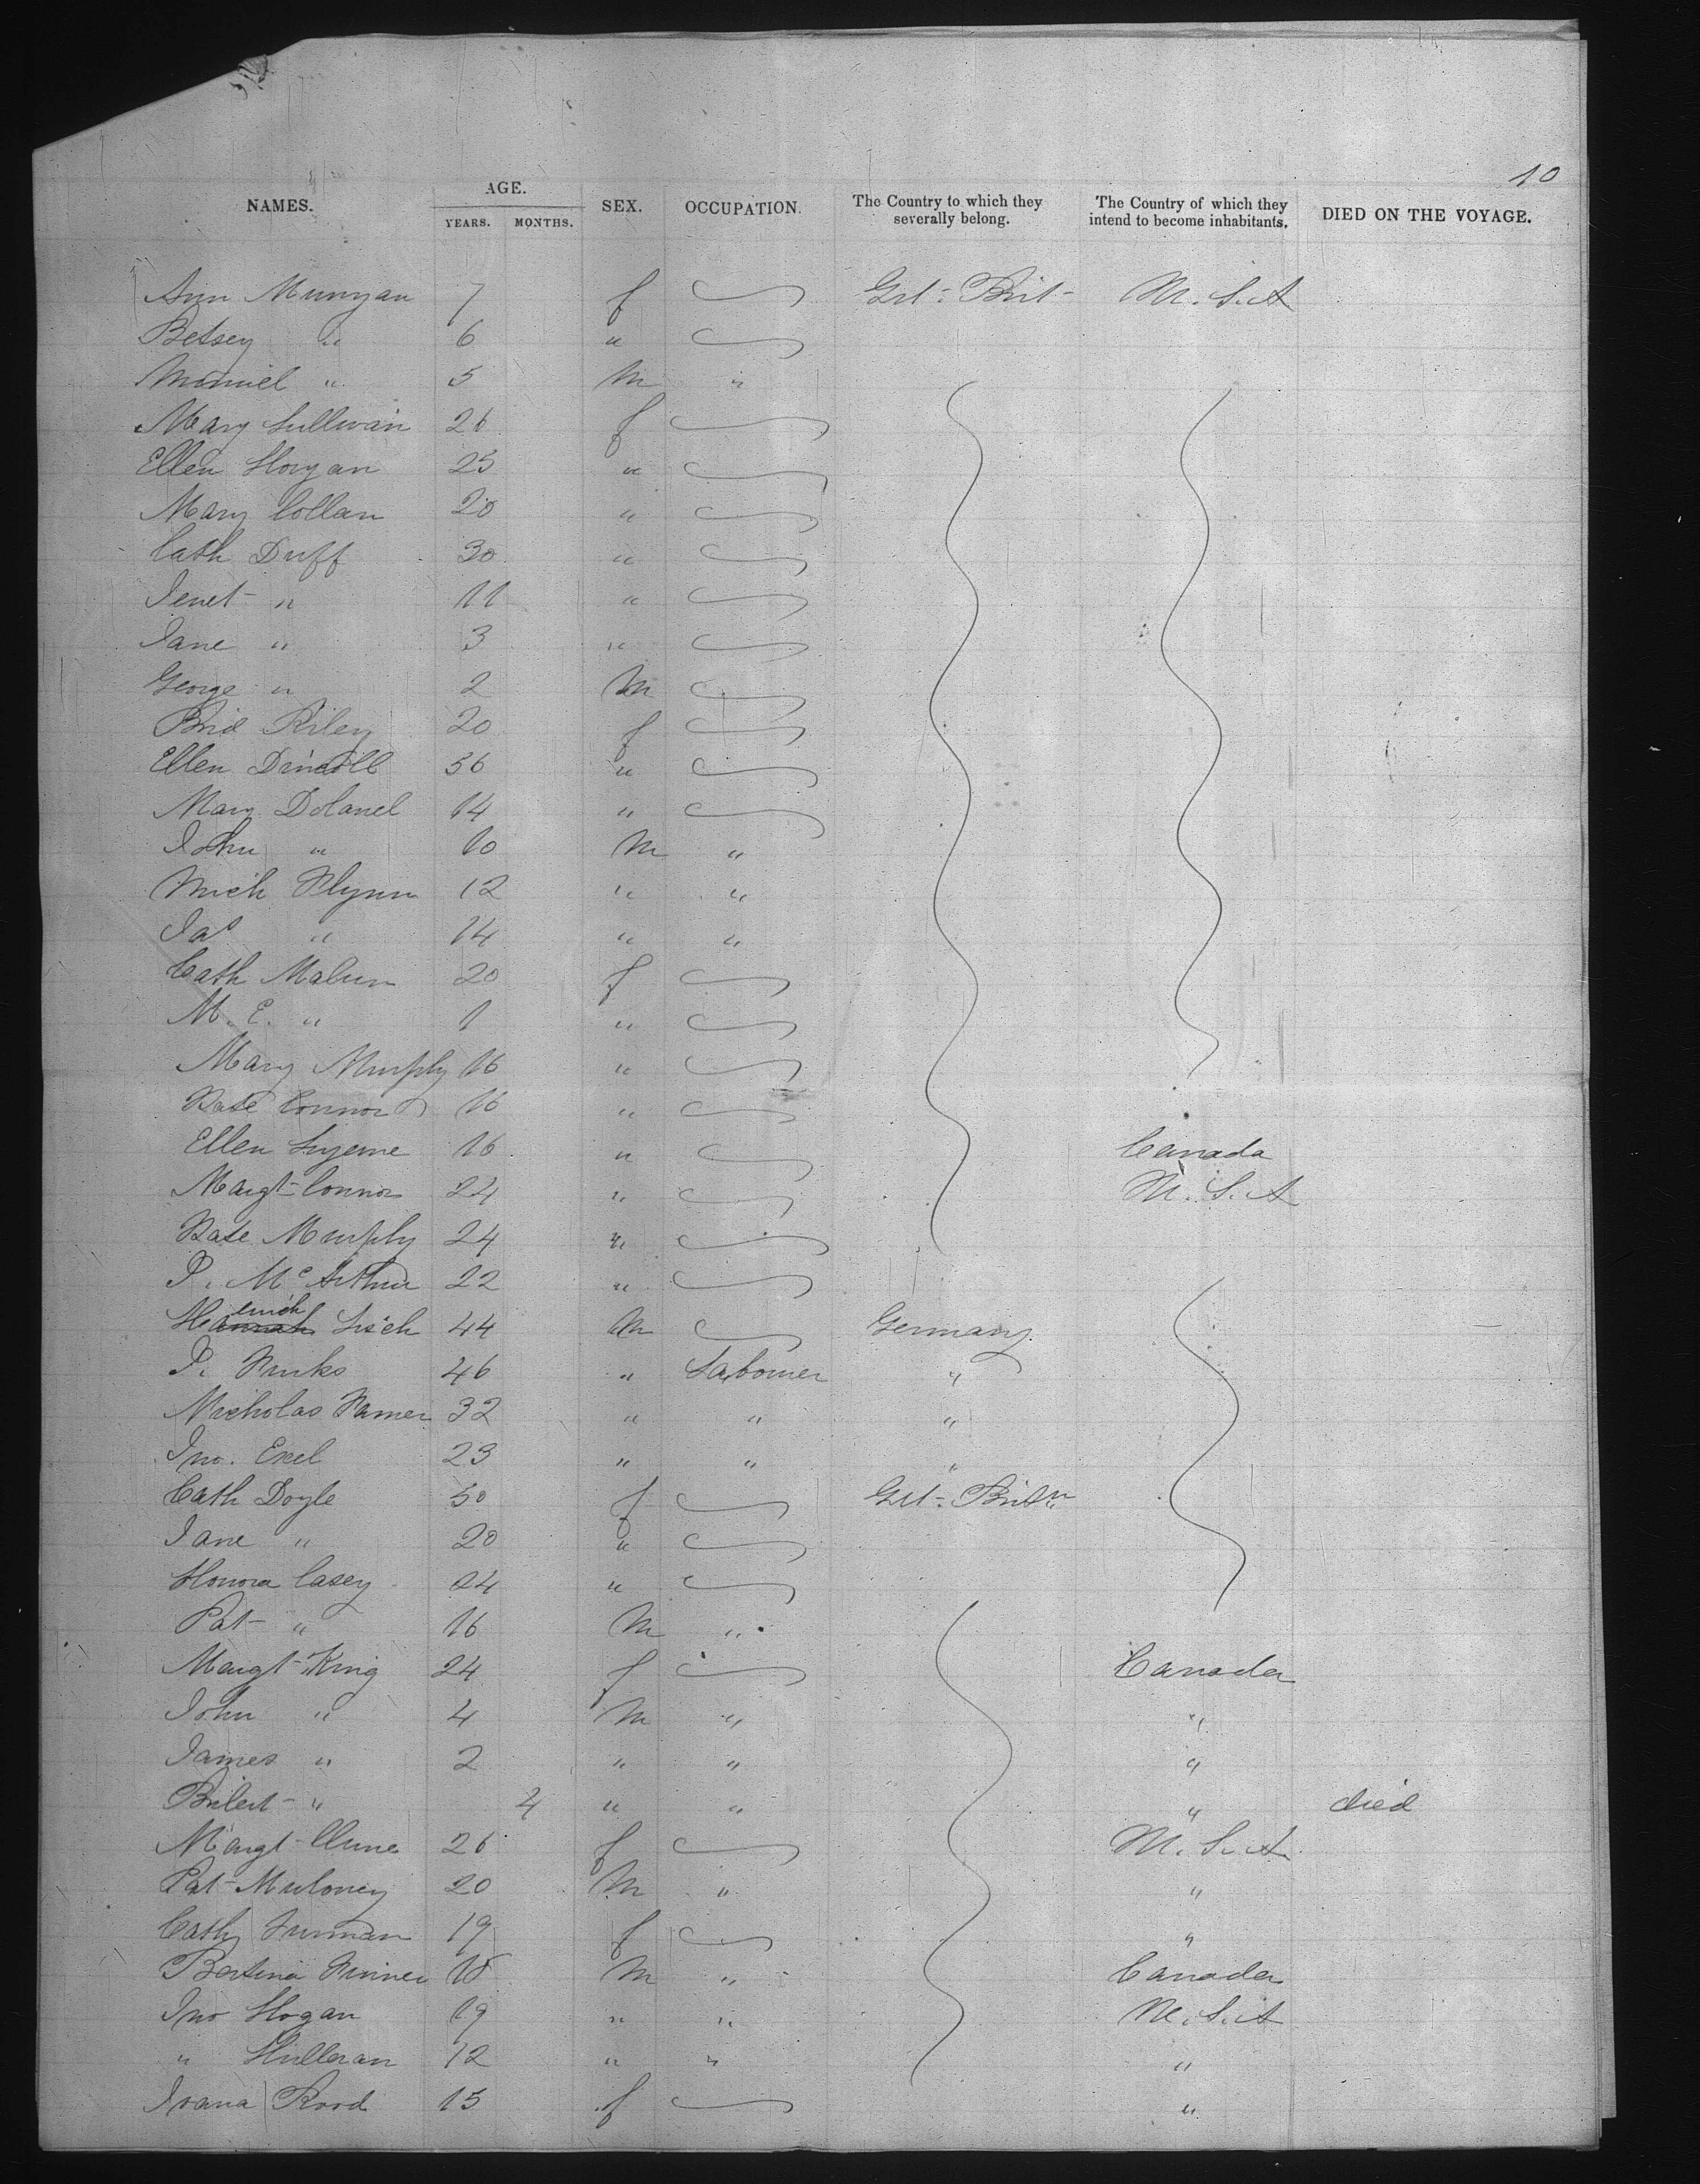 10
NAMES. AGE. YEARS. MONTHS. SEX. OCCUPATION. The Country to which they severally belong. The Country of which they intend to become inhabitants. DIED ON THE VOYAGE.
Ann Munyan 7 f Grt- Brit- U.S.A
Betsey " 6 "
" 5 M "
Mary Sullivan 26 f
Ellen Horgan 25 "
Mary Collan 20 "
Cath Duff 30 "
Jenet " 11 "
Jane " 3 "
George " 2 M
Brid Riley 20 f
Ellen Driscoll 56 "
Mary Dolanel 14 "
John " 10 M "
Mich Flynn 12 " "
Jas " 14 " "
Cath Malun 20 f
M. E. " 1 "
Mary Murphy 16 "
Kate Connor 16 "
Ellen 16 " Canada
Margt- Connor 24 " U.S.A
Kate Murphy 24 "
P. McArthur 22 "
Heinrich 44 M Germany
P. 46 " Labourer "
Nicholas 32 " " "
Jno. Exel 23 " " "
Cath Doyle 50 f Grt- Britn
Jane " 20 "
Honora Casey 24 "
Pat- " 16 M "
Margt- King 24 f Canada
John " 4 M " "
James " 2 " " "
" 4 " " " died
Margt- Clune 26 f U.S.A
Pat- Muloney 20 M " "
Cath 19 f "
18 M " Canada
Jno Hogan 19 " " U.S.A
" Hulleran 12 " " "
Rood 15 f "